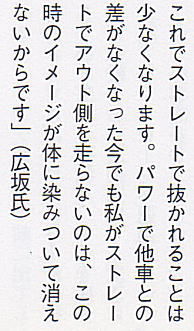 これでストレートで抜かれることは
少なくなります。パワーで他車との
差がなくなった今でも私がストレー
トでアウト側を走らないのは、この
時のイメージが体に染みついて消え
ないからです」（広坂氏）